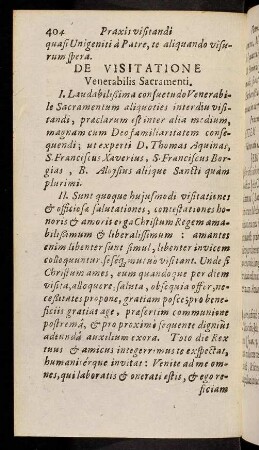 404 Praxis visitandi
quasi Unigeniti à Patre, te aliquando visu-
rum spera.
DE VISITATIONE
Venerabilis Sacramenti.
I. Laudabilissima consuetudo Venerabi-
le Sacramentum aliquoties interdiu visi-
tandi, præclarum est inter alia medium,
magnam cum Deo familiaritatem conse-
quendi; ut experti D. Thomas Aquinas,
S. Franciscus Xaverius, S. Franciscus Bor-
gias, B. Aloysius aliique Sancti quàm
plurimi.
II. Sunt quoque hujusmodi visitationes
& officiosæ salutationes, contestationes ho-
noris & amoris erga Christum Regem ama-
bilissimum & liberalissimum: amantes
enim libenter sunt simul, libenter invicem
colloquuntur, seseq; mutuò visitant. Unde si
Christum ames, eum quandoque per diem
visita, alloquere, saluta, obsequia offer, ne-
cessitates propone, gratiam posce; pro bene-
ficiis gratias age, præsertim communione
postremâ, & pro proximè sequente dignius
adeundâ auxilium exora. Toto die Rex
tuus & amicus integerrimus te exspectat,
humanisérque invitat: Venite ad me om-
nes, qui laboratis & onerati estis, & ego re-
ficiam